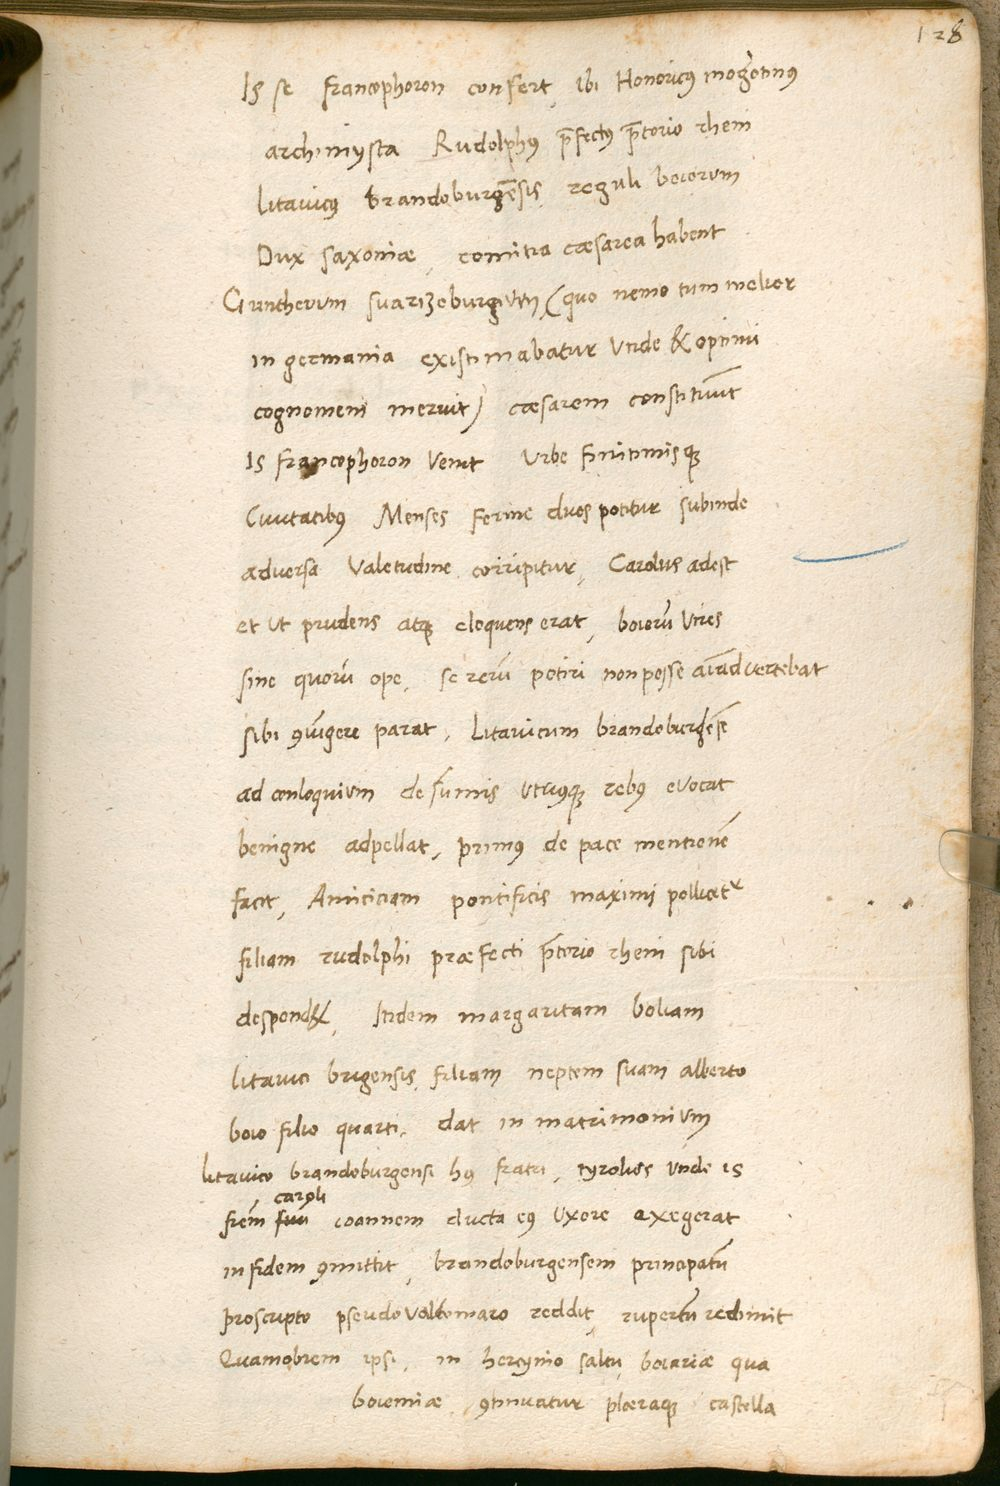 128
Is se francophoron confert, ibi Honoricus mogontinus
archimysta Rudolphus p̄fectus p̄torio rheni
litavicus brandoburgēsis, reguli boiorum
Dux saxoniæ, comitia cæsarea habent
Guntherum suarzeburgium (quo nemo tum melior
in germania existimabatur Unde & optimi
cognomen meruit) cæsarem constituūt
Is francophoron venit Urbe finitimisq;
Civitatibus Menses ferme duos potitur subinde
adversa Valetudine corripitur, Carolus adest
et ut prudens atq; eloquens erat, boiorū vires
sine quorū ope, se rerū potiri non posse aīadvertebat
sibi ꝯiūgere parat, Litavicum brandoburgēsē
ad conloquium de sūmis utriusq; rebus evocat
benigne adpellat, primus de pace mentionē
facit, Amiciciam pontificis maximi pollicet᷑
filiam rudolphi præfecti p̄torio rheni sibi
despond&, Itidem margaritam boliam
litavici brigensis, filiam neptem suam alberto
boio filio quarti, dat in matrimonium
litavico brandoburgensi hus fratri, tyrolios unde is
caroli
frēm suū ioannem ducta eius uxore exegerat
in fidem ꝯmittit, brandoburgensem principatū
proscripto pseudovaldomaro reddit, rupertū redimit
Quamobrem ipsi, in hercynio saltu, boiariæ qua
boiemiæ, ꝯtinuatur plæraq; castella